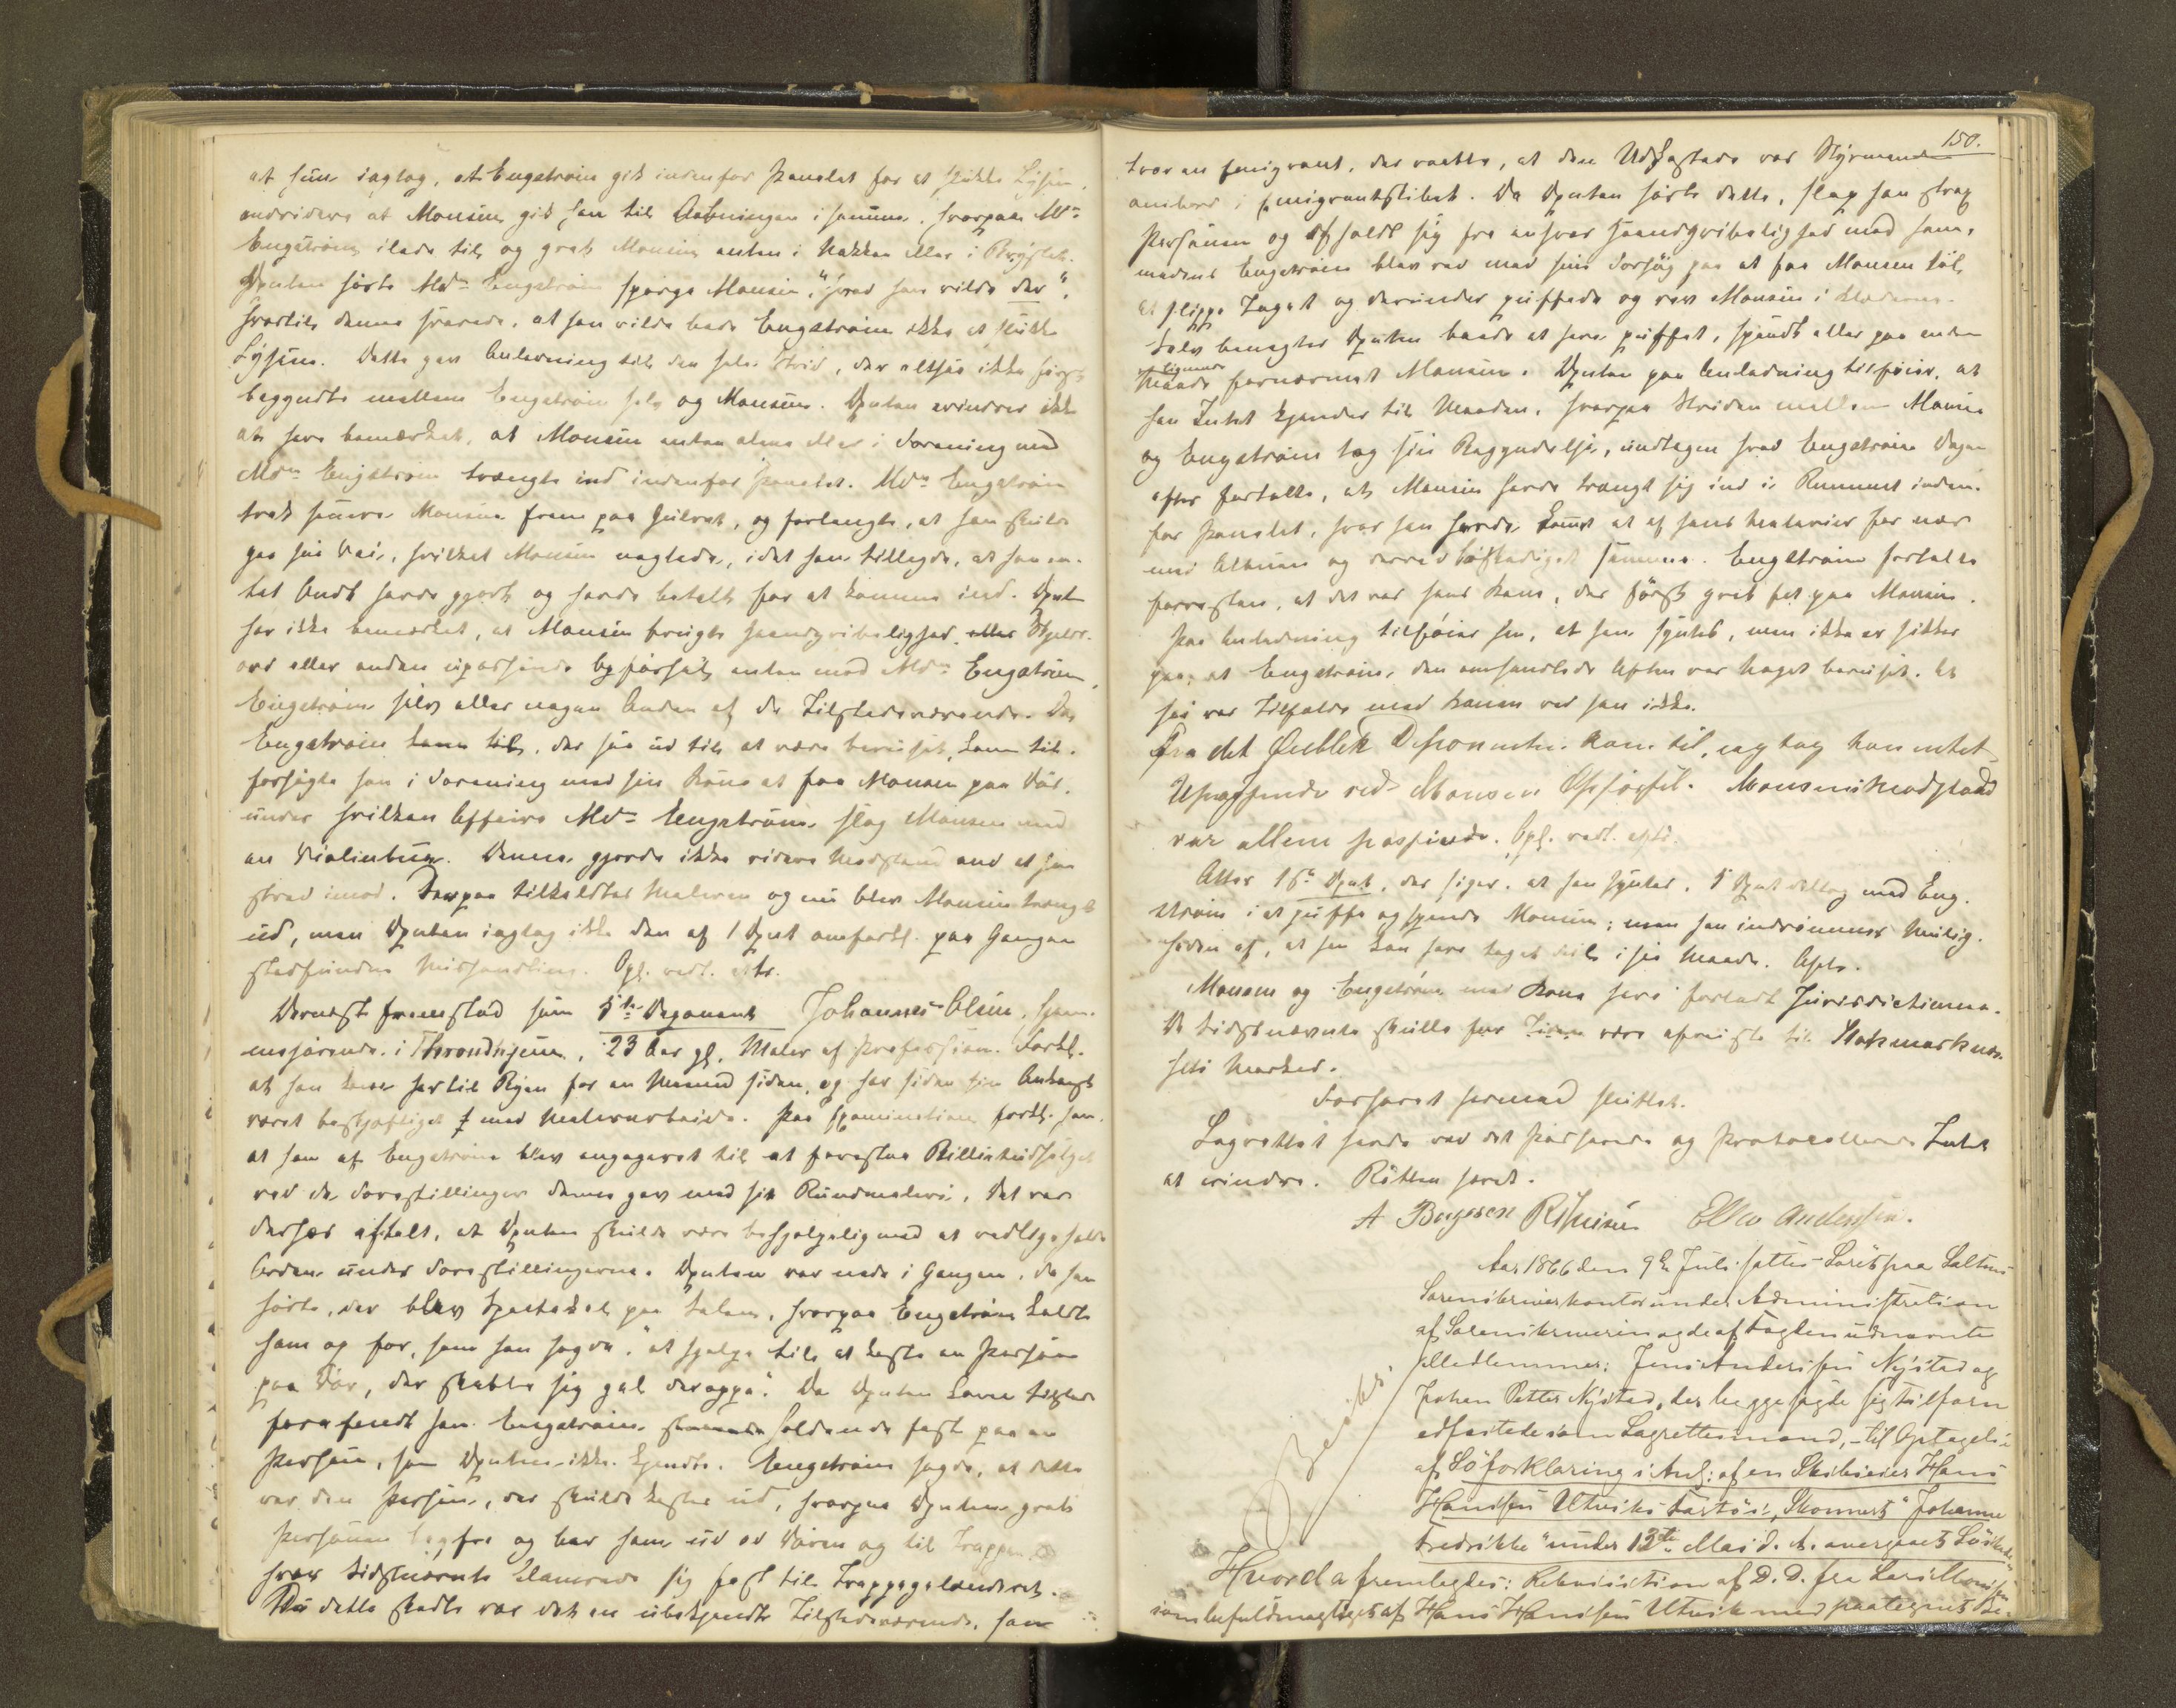 at hun iagtog, at Engstrøm gik indenfor Panelet for at slukke Lysene,
endvidere at Monsen gik hen til Aabningen i samme, hvorpaa Md.
Engstrøm ilede til og greb Monsen enten i Nakken eller i Brystet.
Dptn hørte Md. Engstrøm spørge Monsen, "hvad han vilde der",
hvortil denne svarede, at han vilde bede Engstrøm ikke at slukke
Lysene. Dette gav Anledning til den hele Strid, der altsaa ikke først
begyndte mellem Engstrøm selv og Monsen. Dptn erindrer ikke
at have bemærket, at Monsen enten alene eller i Forening med
Md. Engstrøm trængte ind indenfor Panelet. Md. Engstrøm
trak senere Monsen frem paa Gulvet, og forlangte, at han skulde
gaa sin Vei, hvilket Monsen neglede, idet han tillagde, at han in-
tet Ondt havde gjort og havde betalt for at komme ind. Dptn
har ikke bemærket, at Monsen brugte Haandgribelighed, eller Skjelds-
ord eller anden upassende Opførsel enten mod Md. Engstrøm,
Engstrøm selv eller nogen Anden af de Tilstedeværende. Da
Engstrøm kom til, der saa ud til at være beruset, kom til,
forsøgte han i Forening med sin Kone at faa Monsen paa Dør,
under hvilken Affaire Md. Engstrøm slog Monsen med
en Violinbue. Denne gjorde ikke videre Modstand end at han
stred imod. Derpaa tilkaldtes Maleren og nu blev Monsen trængt
ud, men Dptn iagtog ikke den af 1 Dpnt omforkl. paa Gangen
stedfundne Mishandling. Opl. vedt. aftr.
Dernæst fremstod som 5te Deponent Johannes Olsen, hjem-
mehørende i Throndhjem, 23 Aar gl, Maler af Profession. Forkl.
at han kom her til Byen for en Maaned siden, og har siden sin Ankomst
været beskjæftiget med Malerarbeide. Paa Examination forkl. han,
at han af Engstrøm blev engageret til at forestaa Billetudsalget
ved de Forestillinger denne gav med sit Rundmaleri. Det var
derhos aftalt, at Dptn skulde være behjælpelig med at vedligeholde
Orden under Forestillingerne. Dptn var nede i Gangen, da han
hørte, der blev Spektakel paa Salen, hvorpaa Engstrøm kaldte
ham op for, som han sagde, "at hjælpe til at kaste en Person
paa Dør, der skabte sig gal deroppe". Da Dptn kom tilstede
forefandt han Engstrøm holdende fast paa en
Person, som Dptn ikke kjendte. Engstrøm sagde, at dette
var den Person, der skulde kastes ud, hvorpaa Dptn greb
Personen og bar ham ud ad Døren og til Trappen,
hvor Sidstnævnte klamrede sig fast til Trappegelænderet.
Da dette skedte var det en ubekjendt Tilstedeværende, som
150.
var en Emigrant, der raabte, at den Udkastede var Styrmand
ombord i Emigrantskibet. Da Dptn hørte dette, slap han strax
Personen og afholdt sig fra enhver Haandgribelighed mod ham,
medens Engstrøm blev ved med sine Forsøg paa at faa Monsen til
at slippe Taget og derunder puffede og rev Monsen i Klæderne.
Selv benegter Dptn baade at have puffet, spændt eller paa anden
lignende
Maade fornærmet Monsen. Dptn paa Anledning tilføier, at
han Intet kjender til Maaden, hvorpaa Striden mellem Monsen
og Engstrøm tog sin Begyndelse, undtagen hvad Engstrøm Dagen
efter fortalte, at Monsen havde trængt sig ind i Rummet inden-
for Panelet, hvor han havde kommet at af hans Malerier for nær
med Armen og derved beskadiget samme. Engstrøm fortalte
forresten, at det var hans Kone, der først greb fat paa Monsen.
Paa Anledning tilføier han, at han synes, men ikke er sikker
paa, at Engstrøm, den omhandlede Aften var noget beruset. At
saa var Tilfælde med Konen ved han ikke.
Fra det Øieblik Deponenten kom til, iagtog han intet
Upassende ved Monsens Opførsel. Monsens Modstand
var allene passivt. Opl. vedt. aftr.
Atter 1ste Dpnt, der siger, at han synes, 5 Dpnt deltog med Eng-
strøm i at puffe og spænde Monsen; men han indrømmer Mulig-
heden af, at han kan have taget feil i saa Maade. Aftr.
Monsen og Engstrøm med Kone have forladt Jurisdictionen.
De Sidstnævnte skulle for Tiden være afreiste til Stokmarknes-
sets Marked.
Forhøret hermed sluttet.
Lagrettet havde ved det Passerede og Protocollerede Intet
at erindre. Retten hævet.
A Borgesen Ellev Andersen.
Aar 1866 den 9de Juli sattes Søret paa Saltens
Sorenskriverkontor under Administration
af Sorenskriveren og de af Fogden udnævnte
Meddlemmer: Jens Andersen Nystad og
Johan Petter Nystad, der begge sagde sig tilforn
edfæstede som Lagrettesmænd, - til Optagelse
af Søforklaring i Anl: af en Skibseier Hans
Hansen Utviks Fartøi, Skonnert "Johanne
Fredrikke" under 13de Mai d. A. overgaaet Søskade.
Hvorda fremlagdes: Rekvisition af D. D. fra
som befuldmægtiget af Hans Hansen Utvik med paategnet Be-